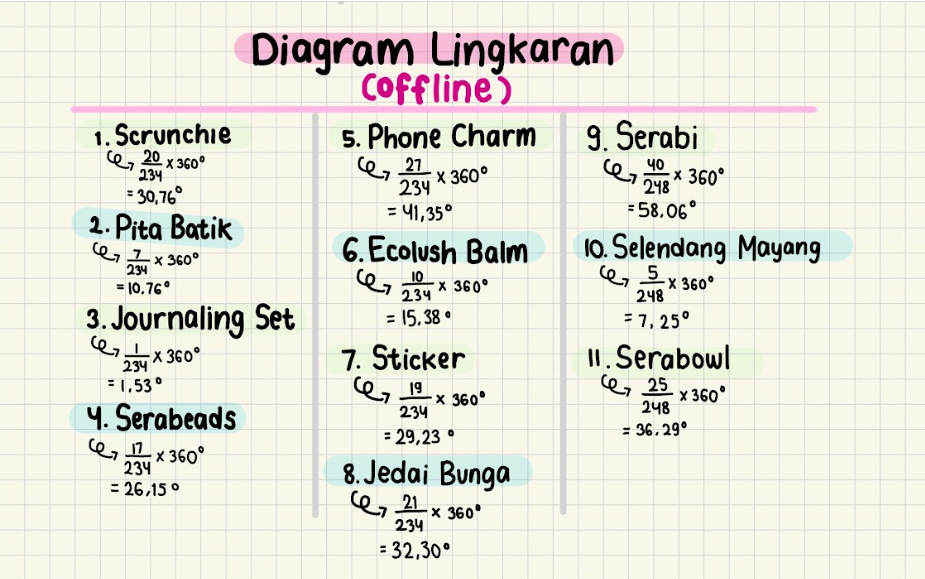 Diagram Lingkaran
(Offline)
1. Scrunchie
20/234 x 360°
= 30,76°
2. Pita Batik
7/234 x 360°
= 10.76°
3. Journaling Set
1/234 x 360°
= 1,53°
4. Serabeads
17/234 x 360°
= 26,15°
5. Phone Charm
27/234 x 360°
= 41,35°
6. Ecolush Balm
10/234 x 360°
= 15,38°
7. Sticker
19/234 x 360°
= 29,23°
8. Jedai Bunga
21/234 x 360°
= 32,30°
9. Serabi
40/248 x 360°
= 58.06°
10. Selendang Mayang
5/248 x 360°
= 7,25°
11. Serabowl
25/248 x 360°
= 36.29°